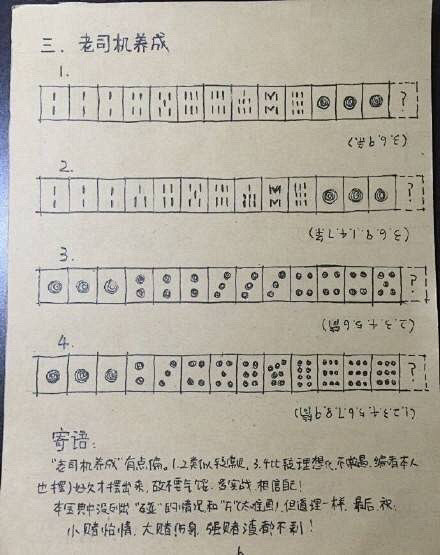 三、老司机养成
1.
?
(3.6.9条)
2.
?
(3.6.9.1.4.7条)
3.
?
(2.3.4.5.6筒)
4.
?
(1.2.3.4.5.6.7.8.9筒)
寄语:
"老司机养成"有点偏。1.2类似较常规,3.4比较理想化,不常遇,编者本人
也摆了好久才摆出来,故不要气馁,多实战,相信自己!
本宝典中没列出"碰"的情况和"万"(太难画),但道理一样,最后,祝:
小赌怡情,大赌伤身,强赌渣都不剩!